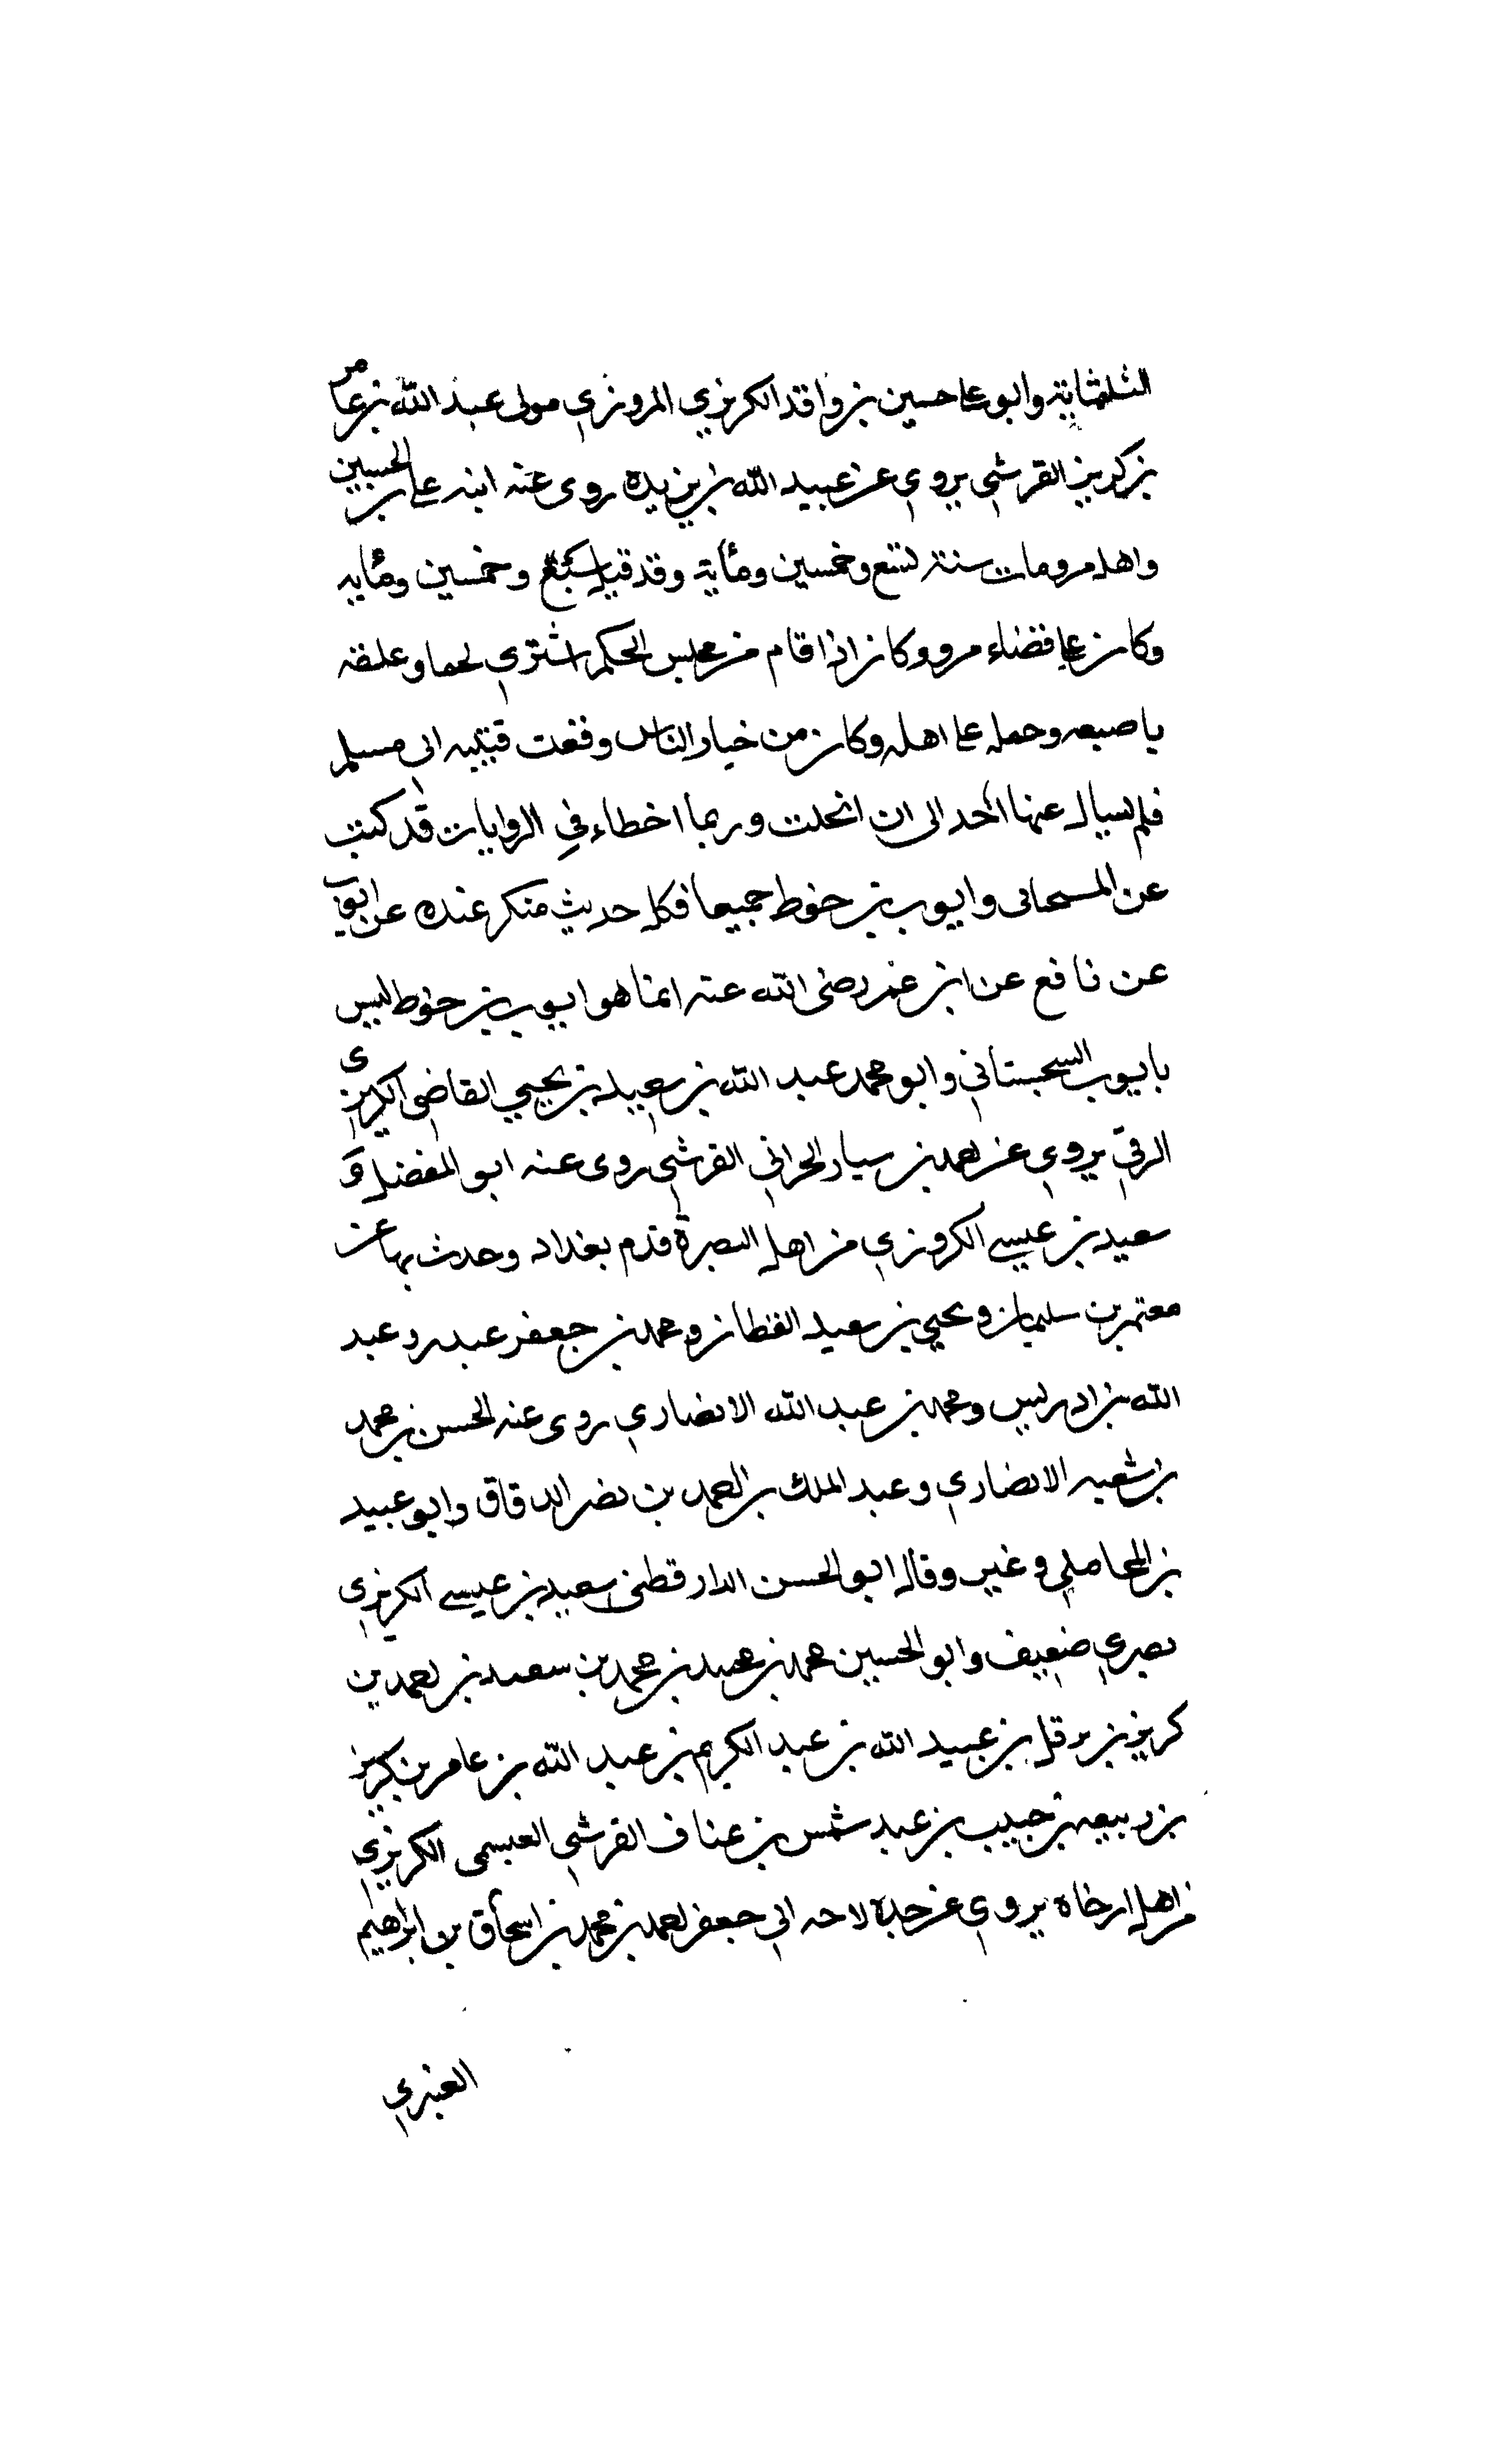 الثلثماية وابو على حسين بن واقد الكريزي المروزي مولى عبد الله بن عامر
بن كريز القرشي يروي عن عبيد الله بن بريدة روى عنه ابنه على بن الحسين
واهل مرو مات سنة تسع وخمسين ومأية وقد قيل سبع وخمسين ومأيه
وكان على قضاء مرو وكان اذا قام من مجلس الحكم اشترى لحما وعلقه
باصبعه وحمله على اهله وكان من خيار الناس وقعت قتيبه ابى مسلم
فلم يسال عنها احد الى ان انحلت وربما اخطاء في الروايات قد كتب
عن السحتانى وايوب بن خوط جميعا فكل حديث منكر عنده عن ايوب
عن نافع عن ابن عمر رضى الله عنه انما هو ايوب بن خوط ليس
بايوب السجستاني وابو محمد عبد الله بن سعيد بن يحيي القاضى الكريزى
الرقي يروي عن احمد بن سيار الحراني القرشي روى عنه ابو المفضل و
سعيد بن عيسى الكروزي من اهل البصرة قدم بغداد وحدث بها عن
معتمر بن سليمان ويحيي بن سعيد القطان ومحمد بن جعفر عبدر وعبد
الله بن ادريس ومحمد بن عبد الله الانصاري روى عنه الحسن بن محمد
بن شعبه الانصاري وعبد الملك بن احمد بن نصر الدقاق وابو عبيد
بن المحاملي وغير وقال ابو الحسن الدارقطنى سعيد بن عيسى الكريزي
بصري ضعيف وابو الحسين محمد بن محمد بن محمد بن سعيد بن احمد بن
كريز بن برقل بن عبيد الله بن عبد الكريم بن عبد الله بن عامر بن كريز
بن ربيعه بن حبيب بن عبد شمس بن عناف القرشي العبسى الكريزي
من اهل ارخاه يروي عن جده لامه ابي جعفر احمد بن محمد بن اسحاق بن ابراهيم
العنبري